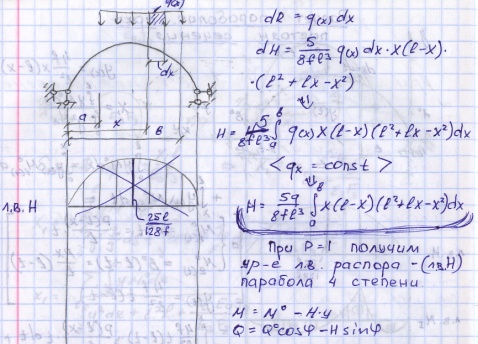 q(x)
dx
a
x
в
л.в. H
25l
128f
dP = q(x) dx
dH = 5/(8fl³) q(x) dx · x(l-x) ·
· (l² + lx - x²)
⇓
H = 5/(8fl³) ∫ₐᵇ q(x) x(l-x)(l² + lx - x²) dx
< qₓ = const >
⇓
H = 5q/(8fl³) ∫ₐᵇ x(l-x)(l² + lx - x²) dx
При P=1 получим
ур-е л.в. распора - (л.в. H)
парабола 4 степени.
M = M° - H·y
Q = Q°cosφ - H sinφ